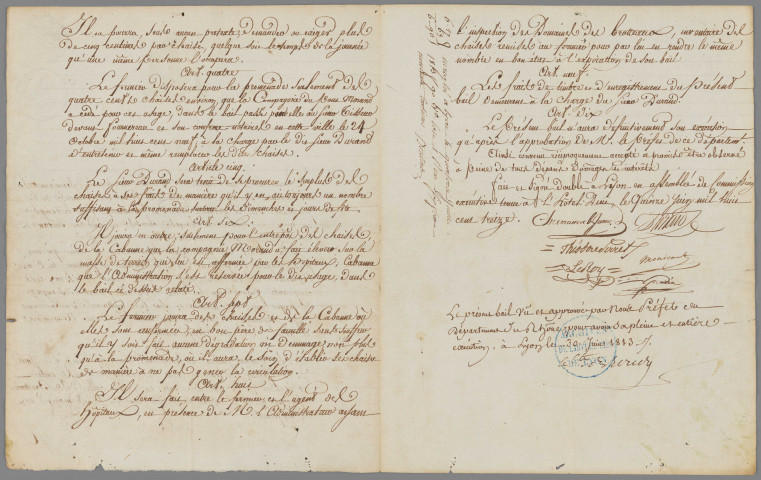 Il ne pourra, sous aucun prétexte, demander ni exiger plus
de cinq centimes par chaise, quelque soit le temps de la journée
qu'une même personne l'occupera.
Art. quatre
Le fermier disposera pour la promenade seulement des
quatre cents chaises environ que la Compagnie du Pont Morand
a cédé pour cet usage, dans le bail passé
devant et son confrère notaires en cette ville le 24
Octobre mil huit cent neuf, à la charge par le dit Sieur Durand
d'entretenir et même remplacer les dites chaises.
Article cinq
Le Sieur Durand sera tenu de se procurer le surplus des
chaises à ses frais de manière qu'il y en ait toujours un nombre
suffisant à la promenade, surtout les Dimanches et jours de fête
Art. Six
Il jouira en outre, seulement pour l'entrepôt des chaises
de la Cabanne que la compagnie Morand a fait élever sur la
masse de terres qui lui est affermée par les hôpitaux, Cabanne
que l'Administration s'est réservée pour le dit usage, dans
le bail ci dessus relaté.
Art. Sept
Le fermier jouira des chaises et de la Cabanne où
elles sont enfermées, en bon père de famille sans souffrir
qu'il y soit fait aucune dégradation ni dommage non plus
qu'à la promenade, où il aura le soin d'établir ses chaises
de manière à ne pas gêner la circulation.
Art. huit
Il sera fait entre le fermier et l'agent des
hôpitaux, en présence de M. l'Administrateur ayant
l'inspection des Domaines des Brotteaux, inventaire des
chaises remises au fermier pour par lui en rendre le même
nombre en bon état à l'expiration de son bail
Art. neuf
Les frais de timbre et d'enregistrement du présent
bail demeurent à la charge du Sieur Durand.
Art. Dix
Le Présent bail n'aura définitivement son exécution
qu'après l'approbation de M. le Préfet de ce département.
Ainsi convenu réciproquement accepté et promis être observé
à peine de tous dépens dommages et intérêts
Fait et signé double à Lyon en assemblée de Commission
exécutive tenue à l'hôtel Dieu, le Quinze Juin mil huit
cent treize.
Durand
Leroy
Le présent bail Vu et approuvé par Nous Préfet du
Département du Rhône, pour avoir sa pleine et entière
exécution, à Lyon le 30 Juin 1813.